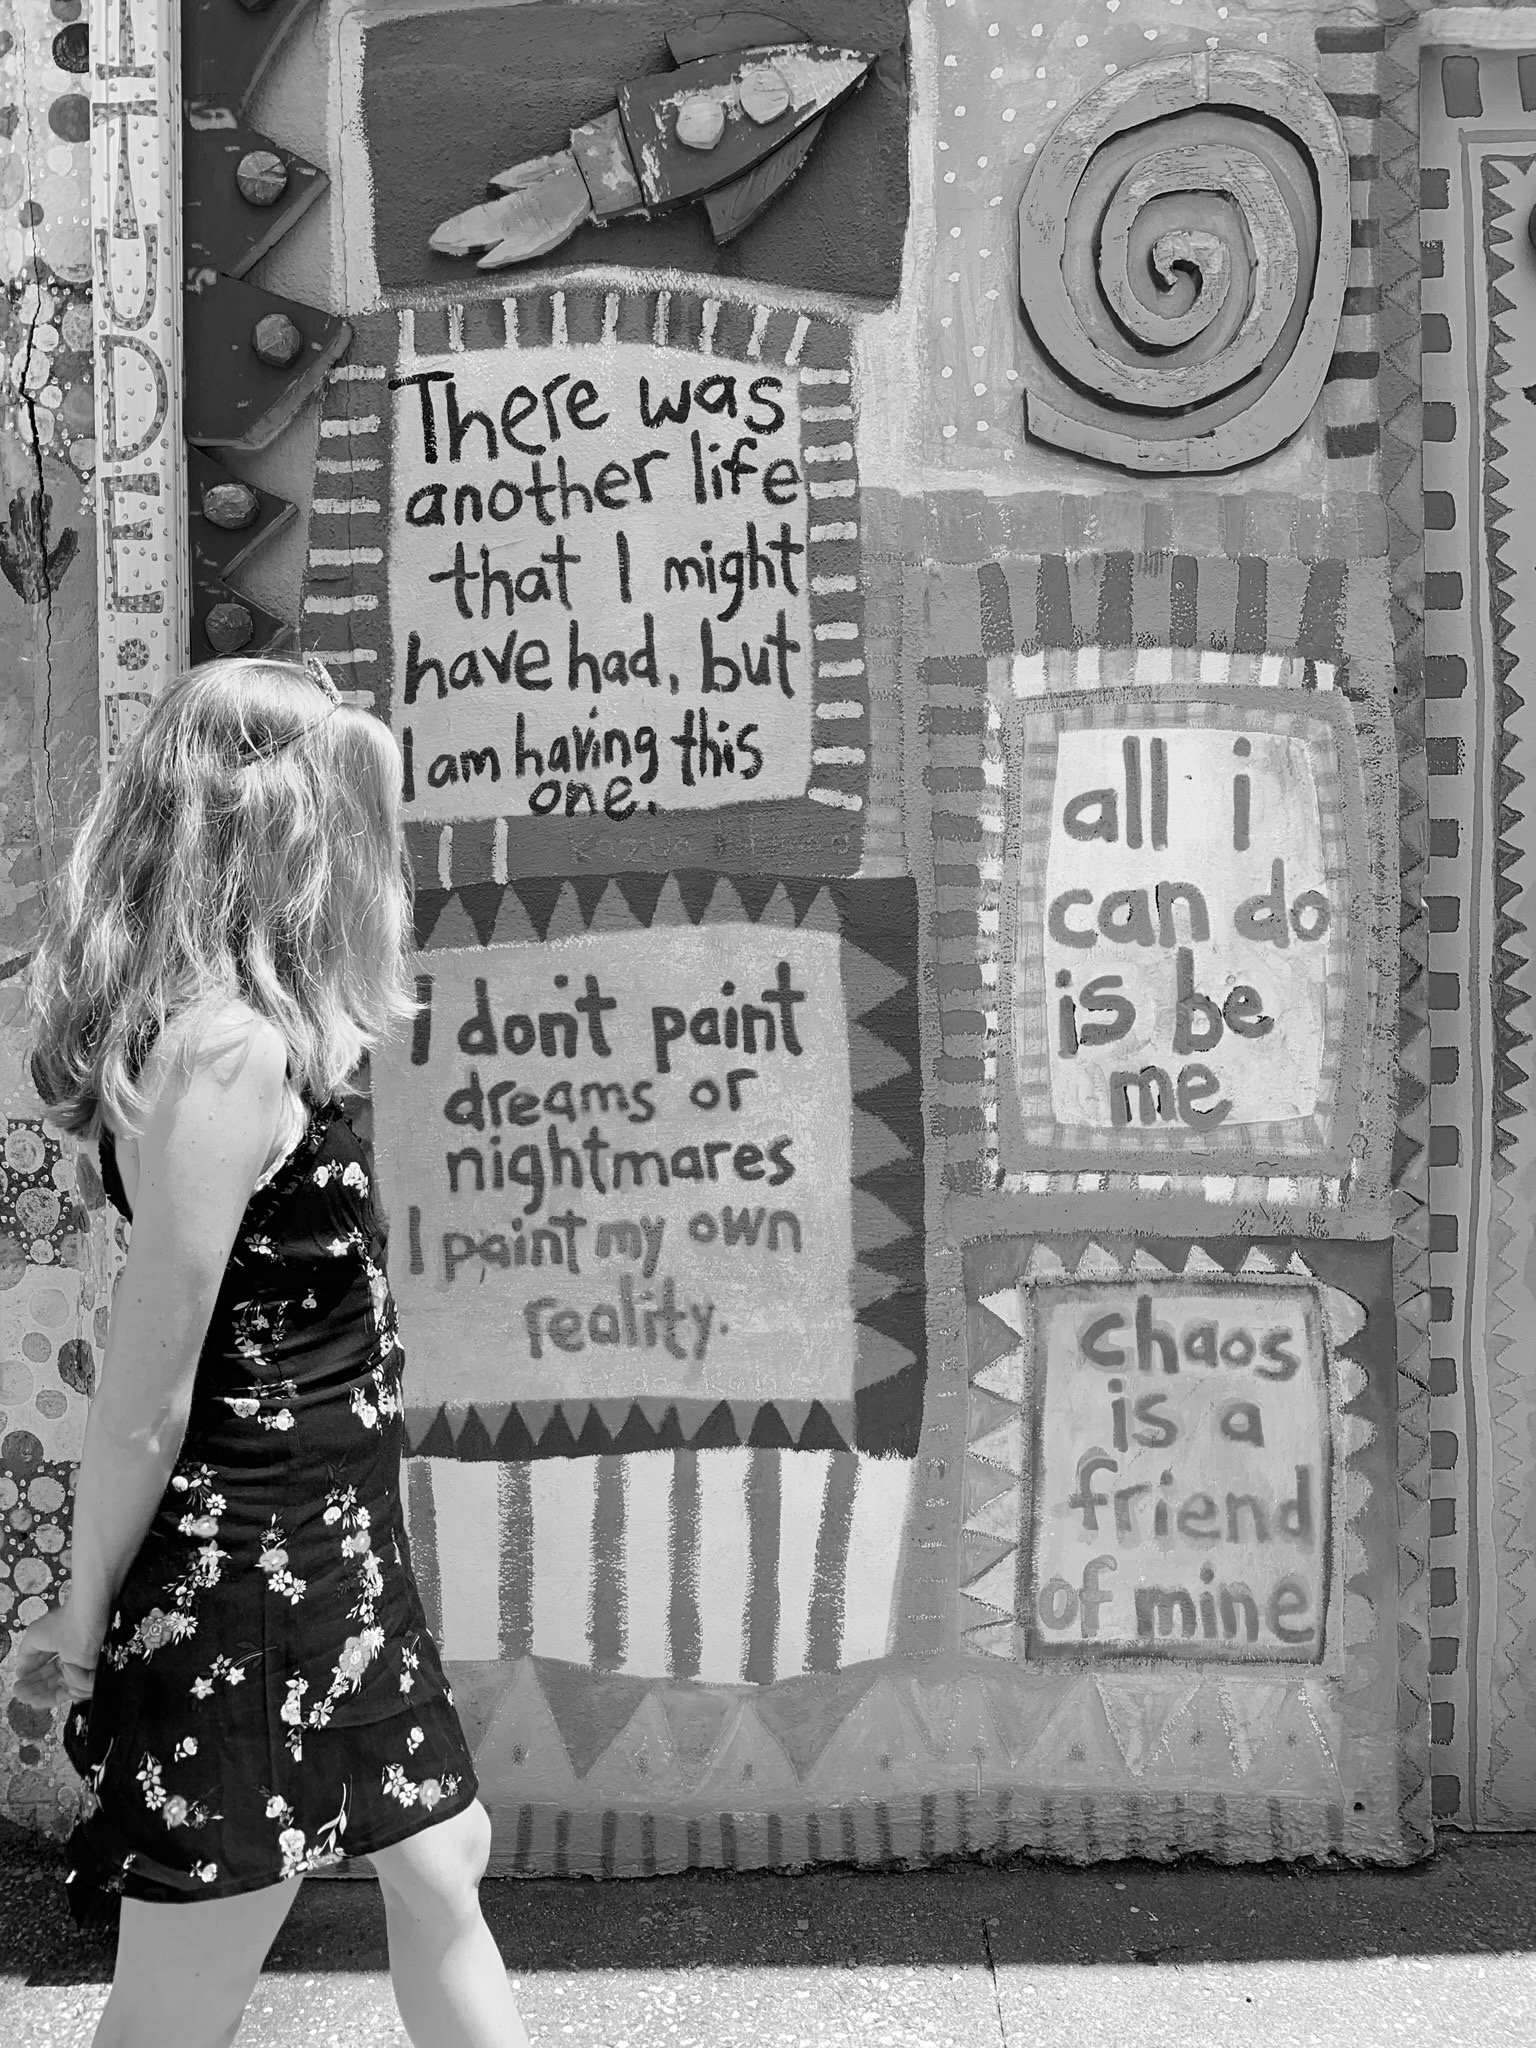 There was
another life
that I might
have had, but
I am having this
one.
I don't paint
dreams or
nightmares
I paint my own
reality.
all i
can do
is be
me
chaos
is a
friend
of mine